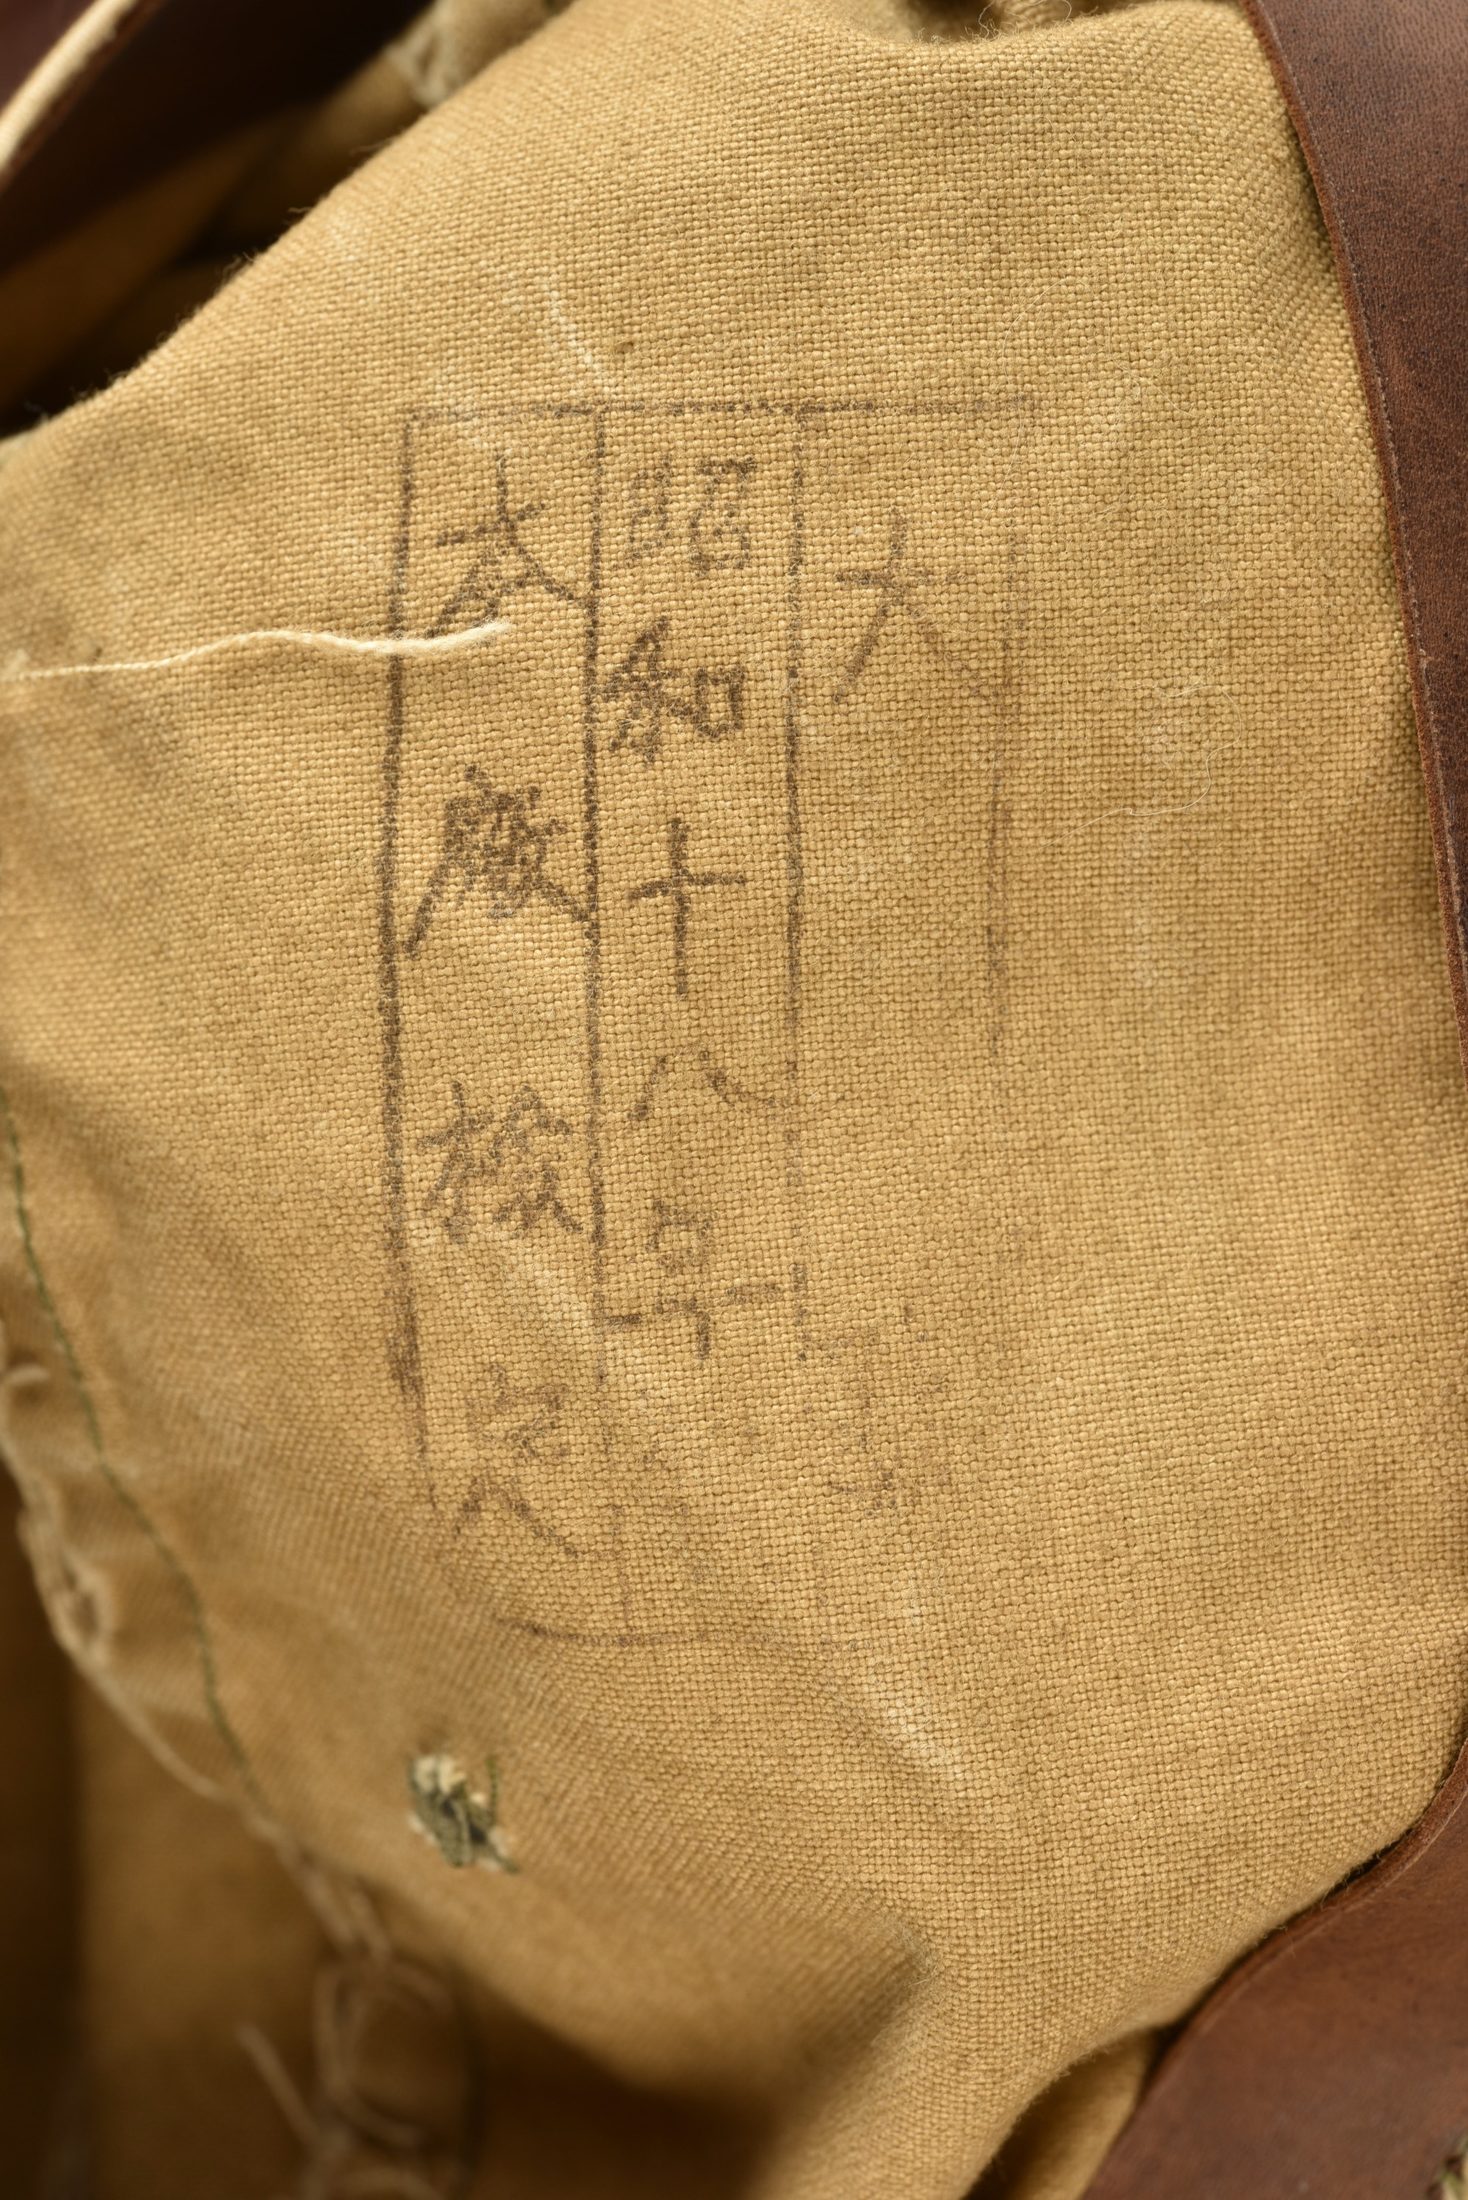 大
昭和十八年
本廠検定